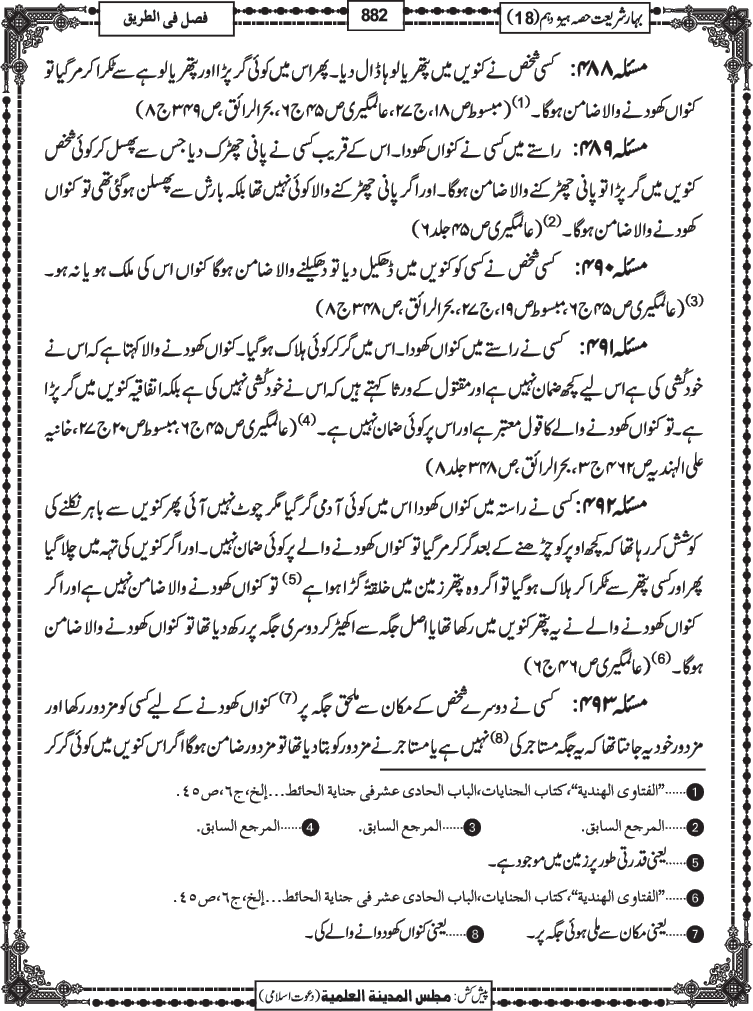 بہار شریعت حصہ ہیژدہم (18)
882
فصل فی الطریق
مسئلہ ۴۸۸: کسی شخص نے کنویں میں پتھر یا لوہا ڈال دیا۔ پھر اس میں کوئی گر پڑا اور پتھر یا لوہے سے ٹکرا کر مر گیا تو
کنواں کھودنے والا ضامن ہوگا۔ (1) (مبسوط ص ۱۸، ج ۲۷، عالمگیری ص ۴۵ ج ۶، بحر الرائق، ص ۳۴۹ ج ۸)
مسئلہ ۴۸۹: راستے میں کسی نے کنواں کھودا۔ اس کے قریب کسی نے پانی چھڑک دیا جس سے پھسل کر کوئی شخص
کنویں میں گر پڑا تو پانی چھڑکنے والا ضامن ہوگا۔ اور اگر پانی چھڑکنے والا کوئی نہیں تھا بلکہ بارش سے پھسلن ہوگئی تھی تو کنواں
کھودنے والا ضامن ہوگا۔ (2) (عالمگیری ص ۴۵ جلد ۶)
مسئلہ ۴۹۰: کسی شخص نے کسی کو کنویں میں ڈھکیل دیا تو دھکیلنے والا ضامن ہوگا کنواں اس کی ملک ہو یا نہ ہو۔
(3) (عالمگیری ص ۴۵ ج ۶، مبسوط ص ۱۹، ج ۲۷، بحر الرائق، ص ۳۴۸ ج ۸)
مسئلہ ۴۹۱: کسی نے راستے میں کنواں کھودا۔ اس میں گر کر کوئی ہلاک ہوگیا۔ کنواں کھودنے والا کہتا ہے کہ اس نے
خودکُشی کی ہے اس لیے کچھ ضمان نہیں ہے اور مقتول کے ورثا کہتے ہیں کہ اس نے خودکُشی نہیں کی ہے بلکہ اتفاقیہ کنویں میں گر پڑا
ہے۔ تو کنواں کھودنے والے کا قول معتبر ہے اور اس پر کوئی ضمان نہیں ہے۔ (4) (عالمگیری ص ۴۵ ج ۶، مبسوط ص ۲۰ ج ۲۷، خانیہ
علی الہندیہ ص ۴۶۲ ج ۳، بحر الرائق، ص ۳۴۸ جلد ۸)
مسئلہ ۴۹۲: کسی نے راستہ میں کنواں کھودا اس میں کوئی آدمی گر گیا مگر چوٹ نہیں آئی پھر کنویں سے باہر نکلنے کی
کوشش کر رہا تھا کہ کچھ اوپر کو چڑھنے کے بعد گر کر مر گیا تو کنواں کھودنے والے پر کوئی ضمان نہیں۔ اور اگر کنویں کی تہہ میں چلا گیا
پھر اور کسی پتھر سے ٹکرا کر ہلاک ہوگیا تو اگر وہ پتھر زمین میں خلقۃً گڑا ہوا ہے (5) تو کنواں کھودنے والا ضامن نہیں ہے اور اگر
کنواں کھودنے والے نے یہ پتھر کنویں میں رکھا تھا یا اصل جگہ سے اکھیڑ کر دوسری جگہ پر رکھ دیا تھا تو کنواں کھودنے والا ضامن
ہوگا۔ (6) (عالمگیری ص ۴۶ ج ۶)
مسئلہ ۴۹۳: کسی نے دوسرے شخص کے مکان سے ملحق جگہ پر (7) کنواں کھودنے کے لیے کسی کو مزدور رکھا اور
مزدور خود یہ جانتا تھا کہ یہ جگہ مستاجر کی (8) نہیں ہے یا مستاجر نے مزدور کو بتا دیا تھا تو مزدور ضامن ہوگا اگر اس کنویں میں کوئی گر کر
1 ......"الفتاوی الھندیۃ"، کتاب الجنایات، الباب الحادی عشر فی جنایۃ الحائط...إلخ، ج٦، ص٤٥.
2 ......المرجع السابق. 3 ......المرجع السابق. 4 ......المرجع السابق.
5 ......یعنی قدرتی طور پر زمین میں موجود ہے۔
6 ......"الفتاوی الھندیۃ"، کتاب الجنایات، الباب الحادی عشر فی جنایۃ الحائط...إلخ، ج٦، ص٤٥.
7 ......یعنی مکان سے ملی ہوئی جگہ پر۔ 8 ......یعنی کنواں کھودوانے والے کی۔
پیش کش: مجلس المدینۃ العلمیۃ (دعوت اسلامی)